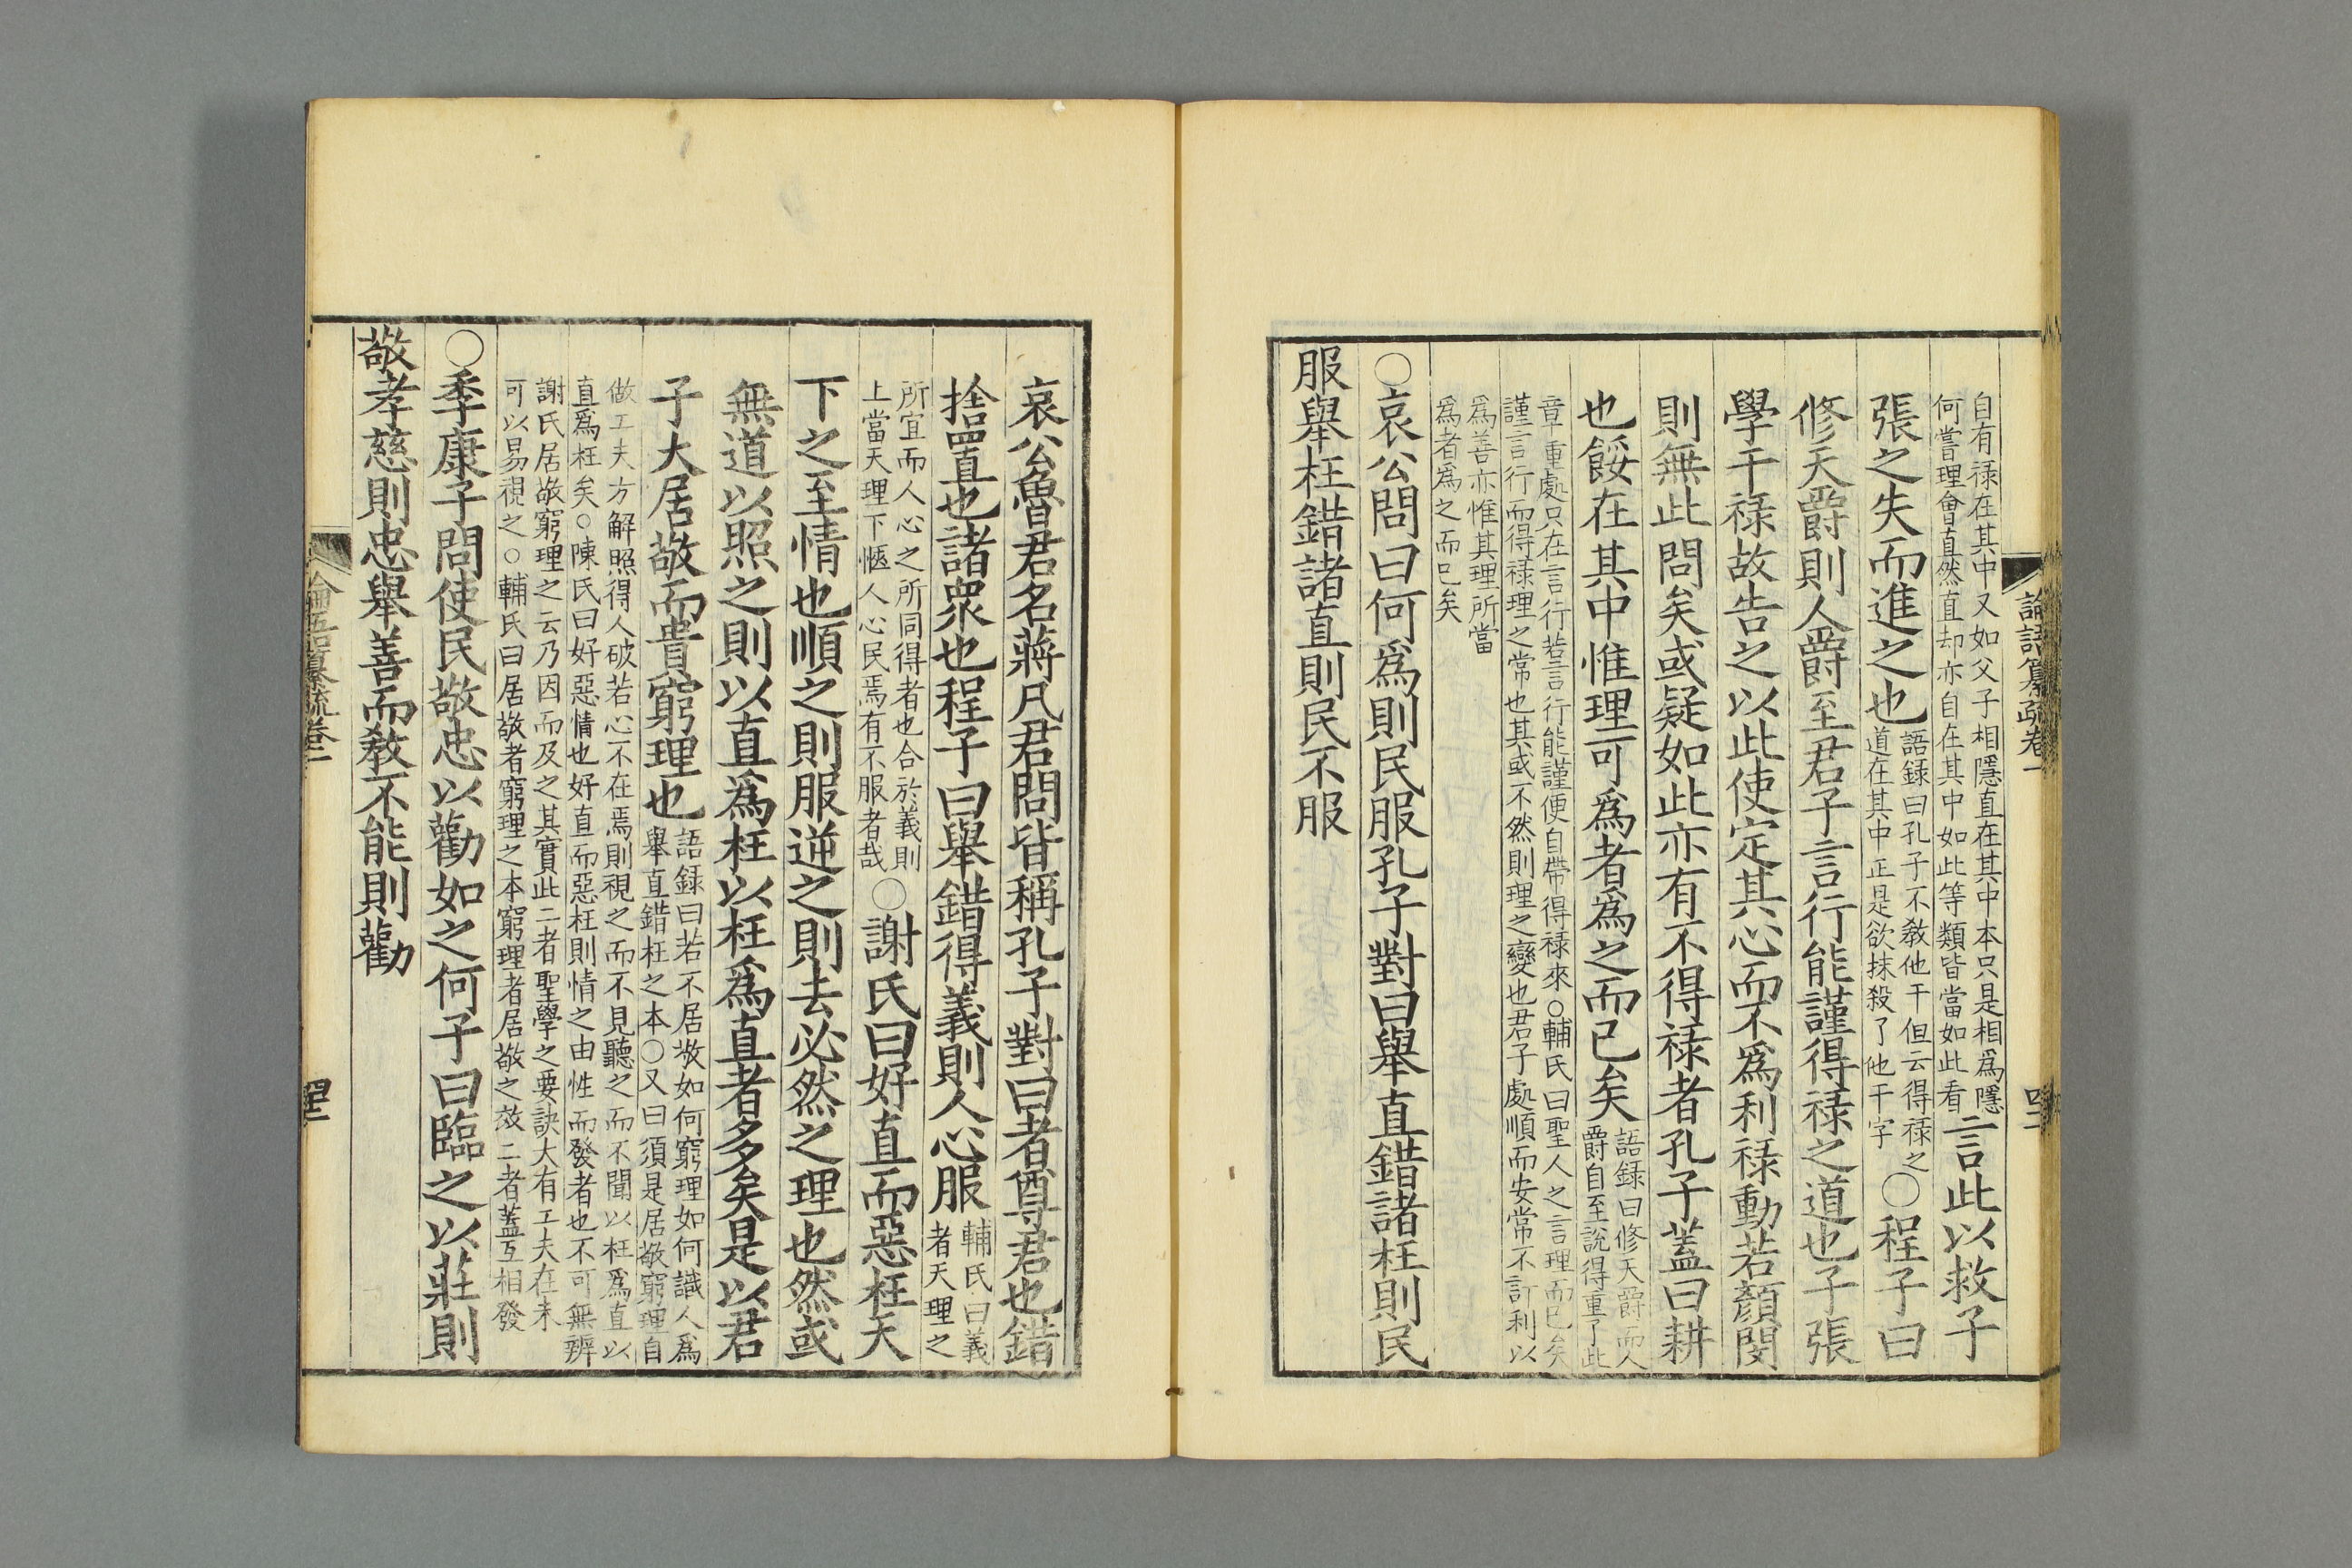 論語纂疏卷一
自有祿在其中又如父子相隱直在其中本只是相爲隱
何嘗理會直然直却亦自在其中如此等類皆當如此看
言此以救子
張之失而進之也
語録曰孔子不教他干但云得祿之
道在其中正是欲抹殺了他干字
○程子曰
修天爵則人爵至君子言行能謹得祿之道也子張
學干祿故告之以此使定其心而不爲利祿動若顏閔
則無此問矣或疑如此亦有不得祿者孔子蓋曰耕
也餒在其中惟理可爲者爲之而已矣
語録曰修天爵而人
爵自至說得重了此
章重處只在言行若言行能謹便自帶得祿來○輔氏曰聖人之言理而已矣
謹言行而得祿理之常也其或不然則理之變也君子處順而安常不計利以
爲善亦惟其理所當
爲者爲之而已矣
○哀公問曰何爲則民服孔子對曰舉直錯諸枉則民
服舉枉錯諸直則民不服
哀公魯君名蔣凡君問皆稱孔子對曰者尊君也錯
捨置也諸衆也程子曰舉錯得義則人心服
輔氏曰義
者天理之
所宜而人心之所同得者也合於義則
上當天理下愜人心民焉有不服者哉
○謝氏曰好直而惡枉天
下之至情也順之則服逆之則去必然之理也然或
無道以照之則以直爲枉以枉爲直者多矣是以君
子大居敬而貴窮理也
語録曰若不居敬如何窮理如何識人爲
舉直錯枉之本○又曰須是居敬窮理自
做工夫方解照得人破若心不在焉則視之而不見聽之而不聞以枉爲直以
直爲枉矣○陳氏曰好惡情也好直而惡枉則情之由性而發者也不可無辨
謝氏居敬窮理之云乃因而及之其實此二者聖學之要訣大有工夫在未
可以易視之○輔氏曰居敬者窮理之本窮理者居敬之效二者蓋互相發
○季康子問使民敬忠以勸如之何子曰臨之以莊則
敬孝慈則忠舉善而教不能則勸
論語纂疏卷一